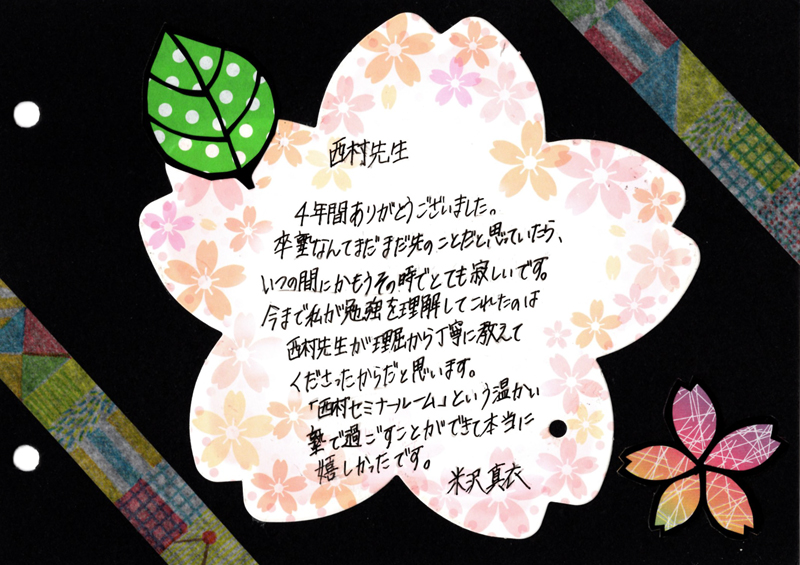 西村先生
4年間ありがとうございました。
卒塾なんてまだまだ先のことだと思っていたら、
いつの間にかもうその時でとても寂しいです。
今まで私が勉強を理解してこれたのは
西村先生が理屈から丁寧に教えて
くださったからだと思います。
「西村セミナールーム」という温かい
塾で過ごすことができて本当に
嬉しかったです。
米沢真衣